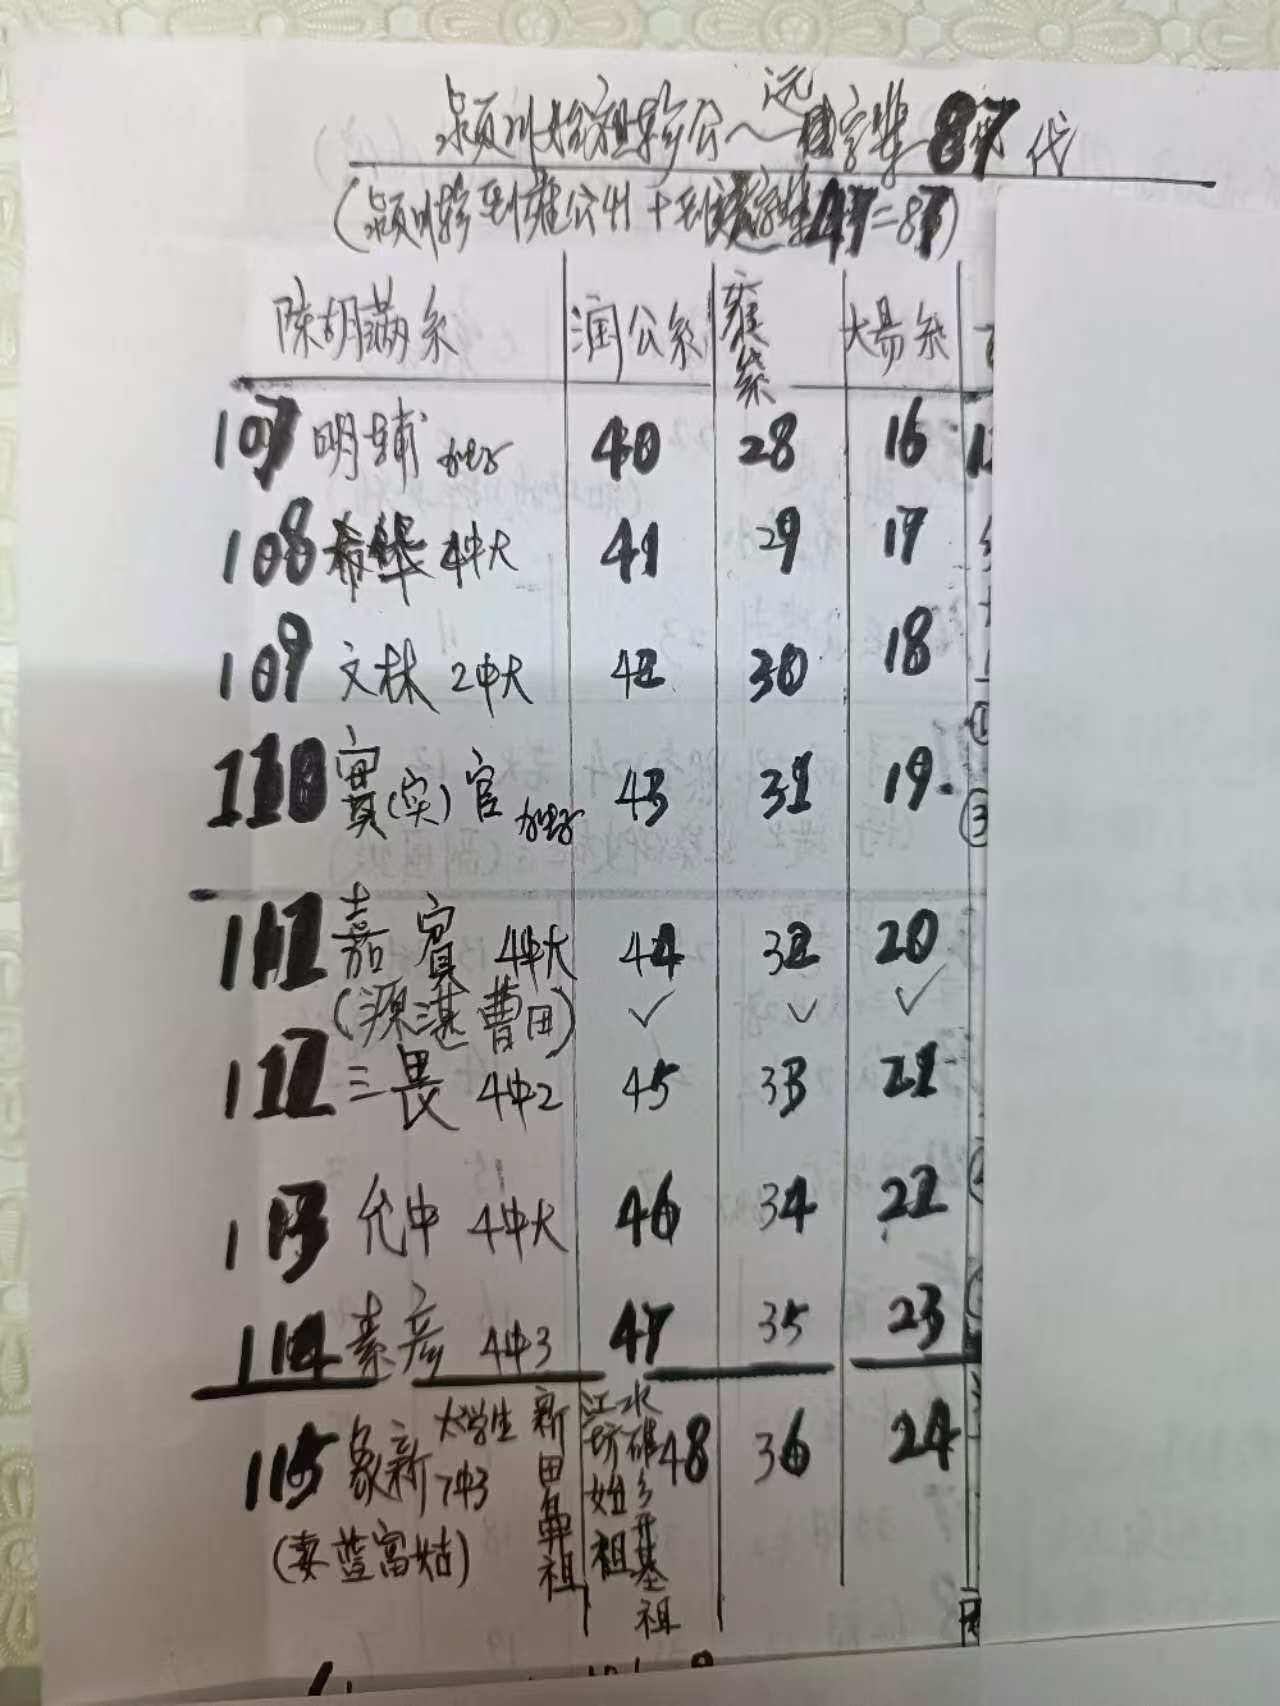 颍川始祖轸公～远字辈87代
陈胡满系 润公系 雍系 大易系
107 明辅 40 28 16
108 希华 4中大 41 29 17
109 文林 2中大 42 30 18
110 (实)官 43 31 19.
111 嘉宾 4中大 44 32 20
(源湛曹田) ✓ ✓ ✓
112 三畏 4中2 45 33 21
113 允中 4中大 46 34 22
114 素彦 4中3 47 35 23
115 象新 7中3 大学生 48 36 24
新田鼻祖
江坊始祖
水碓乡开基祖
(妻蓝富姑)